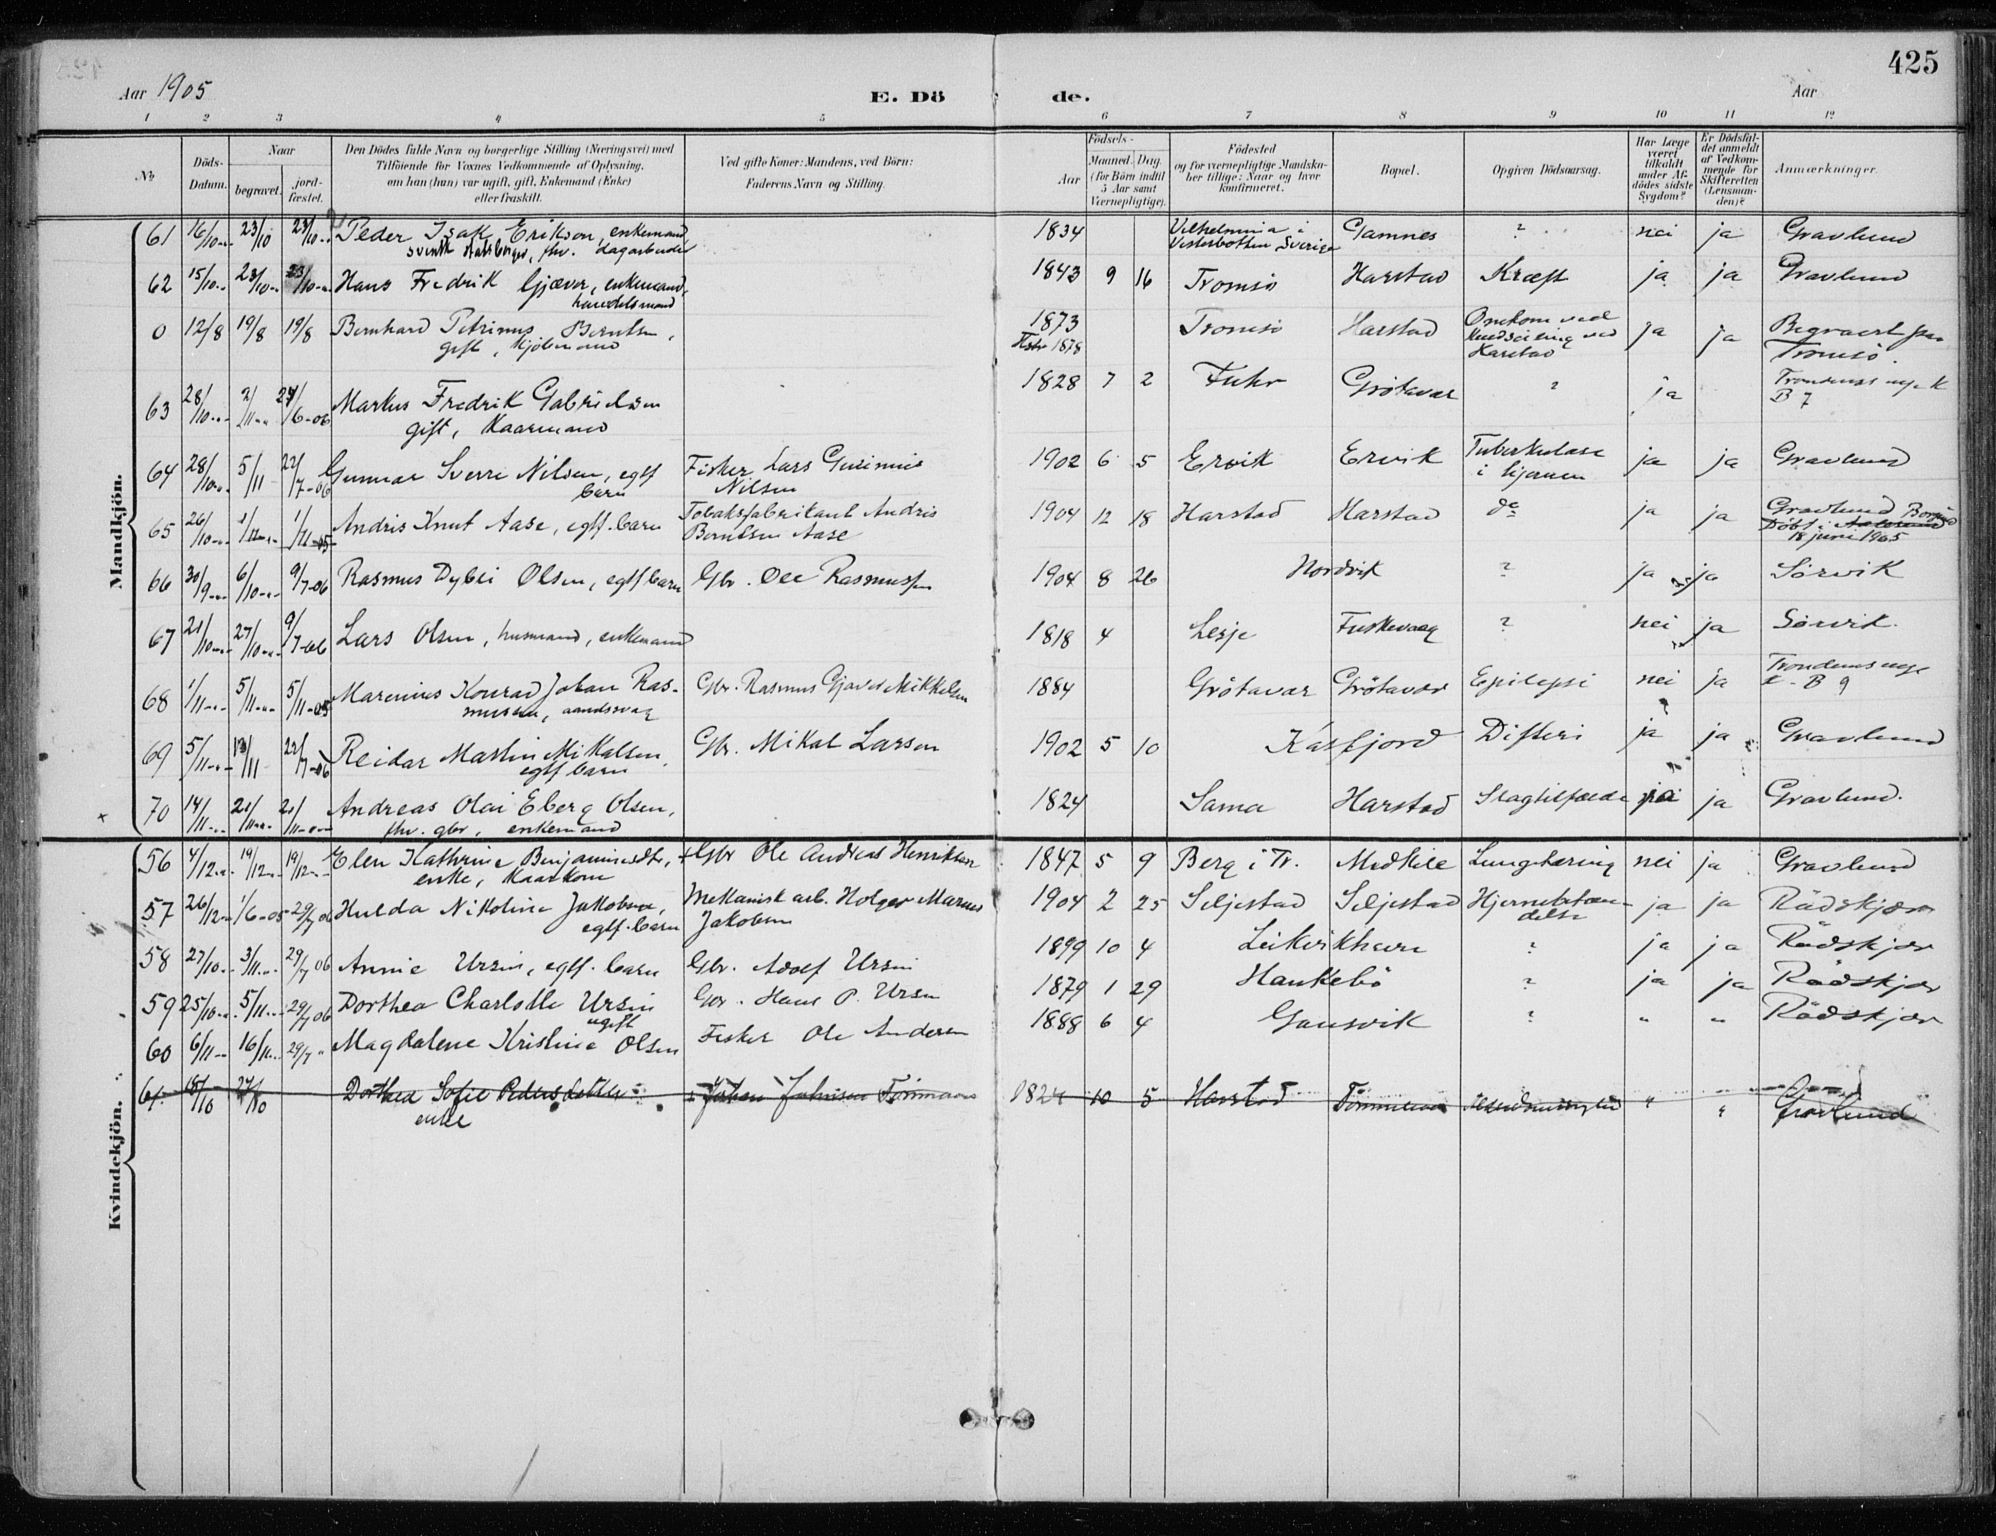 425
Aar 1905
E. Dö de.
Aar
1 2 3 4 5 6 7 8 9 10 11 12
No.
Döds-Datum.
Naar
begravet.
jordfæstet.
Den Dödes fulde Navn og borgerlige Stilling (Næringsvei) med
Tilföiende for Voxnes Vedkommende af Oplysning,
om han (hun) var ugift, gift, Enkemand (Enke)
eller fraskilt.
Ved gifte Koner: Mandens, ved Börn:
Faderens Navn og Stilling.
Födsels-
Aar
Maaned. Dag.
(for Börn indtil
5 Aar samt
Værnepligtige).
Födested
og for værnepligtige Mandskaber
tillige: Naar og hvor
konfirmeret.
Bopæl.
Opgiven Dödsaarsag.
Har Læge
været
tilkaldt
under Afdödes
sidste
Sygdom?
Er Dödsfaldet
anmeldt
af Vedkommende
for
Skifteretten
(Lensmanden)?
Anmærkninger.
Mandkjön.
61 16/10 23/10 23/10 Peder Isak Erikson, enkemand 1834 Vilhelmina i Gamnes ? nei ja Gravlund
svensk statsborger, fhv. dagarbeider Vesterbotten Sverige
62 15/10 23/10 23/10 Hans Fredrik Gjæver, enkemand, 1843 9 16 Tromsö Harstad Kræft ja ja Gravlund
handelsmand
0 12/8 19/8 19/8 Bernhard Petrinus Berntsen, 1873 Tromsö Harstad Omkom ved ja ja Begravet paa
gift, kjöbmand 1878 Harstad Tromsö.
63 28/10 2/11 6-06 Markus Fredrik Gabrielsen 1828 7 2 Grötavær ? ja Trondenes nye K
gift, Kaarmand B 7
64 28/10 5/11 22/7-06 Gunnar Sverre Nilsen, egtf Fisker Lars 1902 6 5 Ervik Ervik Tuberkulose ja ja Gravlund
barn Nilsen i hjernen
65 26/10 1/11 1/11-05 Andris Knut Aase, egtf. barn Tobaksfabrikant Andris 1904 12 18 Harstad Harstad do ja ja Gravlund
Berntsen Aase Döbt i Aalesund Borgund
18 juni 1905
66 30/9 6/10 9/7-06 Rasmus Dybli Olsen, egtf barn Gbr. Ole Rasmussen 1904 8 26 Nordvik ? ja ja Sörvik
67 21/10 27/10 9/7-06 Lars Olsen, husmand, enkemand 1818 4 Lesje Fuskevaag ? nei ja Sörvik.
68 1/11 5/11 5/11-05 Marenius Konrad Johan Ras- Gbr. Rasmus Mikkelsen 1884 Grötavær Grötavær Epilepsi nei ja Trondenes nye
musen, aandssvag K - B 9
69 5/11 13/11 22/7-06 Reidar Martin Mikalsen, Gbr. Mikal Larsen 1902 5 10 Kasfjord Difteri ja ja Gravlund
egtf barn
70 14/11 21/11 21/11 Andreas Olai Eberg Olsen, 1824 Sama Harstad Slagtilfælde ja ja Gravlund.
fhv. gbr, enkemand
Kvindekjön.
56 4/12 19/12 19/12 Elen Kathrine Benjaminsdtr, + Gbr Ole Andreas Henriksen 1847 5 9 Berg i Tr. Medkile Lungetæring nei ja Gravlund
enke, Kaarkone
57 26/12 1/6-05 29/7 06 Hulda Nikoline Jakobsen, Mekanisk arb. Holger Marius 1904 2 25 Seljestad Seljestad Hjernebetæn- ja ja Rödskjær
egtf. barn Jakobsen delse
58 27/10 3/11 29/7 06 Annie Ursin, egtf. barn Gbr. Adolf Ursin 1899 10 4 ? ja ja Rödskjær
59 25/10 5/11 29/7 06 Dorthea Charlotte Ursin Gbr. Hans P. Ursin 1879 1 29 Haukebö ? ja ja Rödskjær
ugift
60 6/11 16/11 29/7 " Magdalene Kristine Olsen Fisker Ole Andersen 1888 6 4 Gausvik ? " " Rödskjær
61 18/10 27/10 Dorthea Sofie Pedersdatter Johan Johnsen Tömmeraas 1824 10 5 Harstad Tömmeraas " " Gravlund
enke